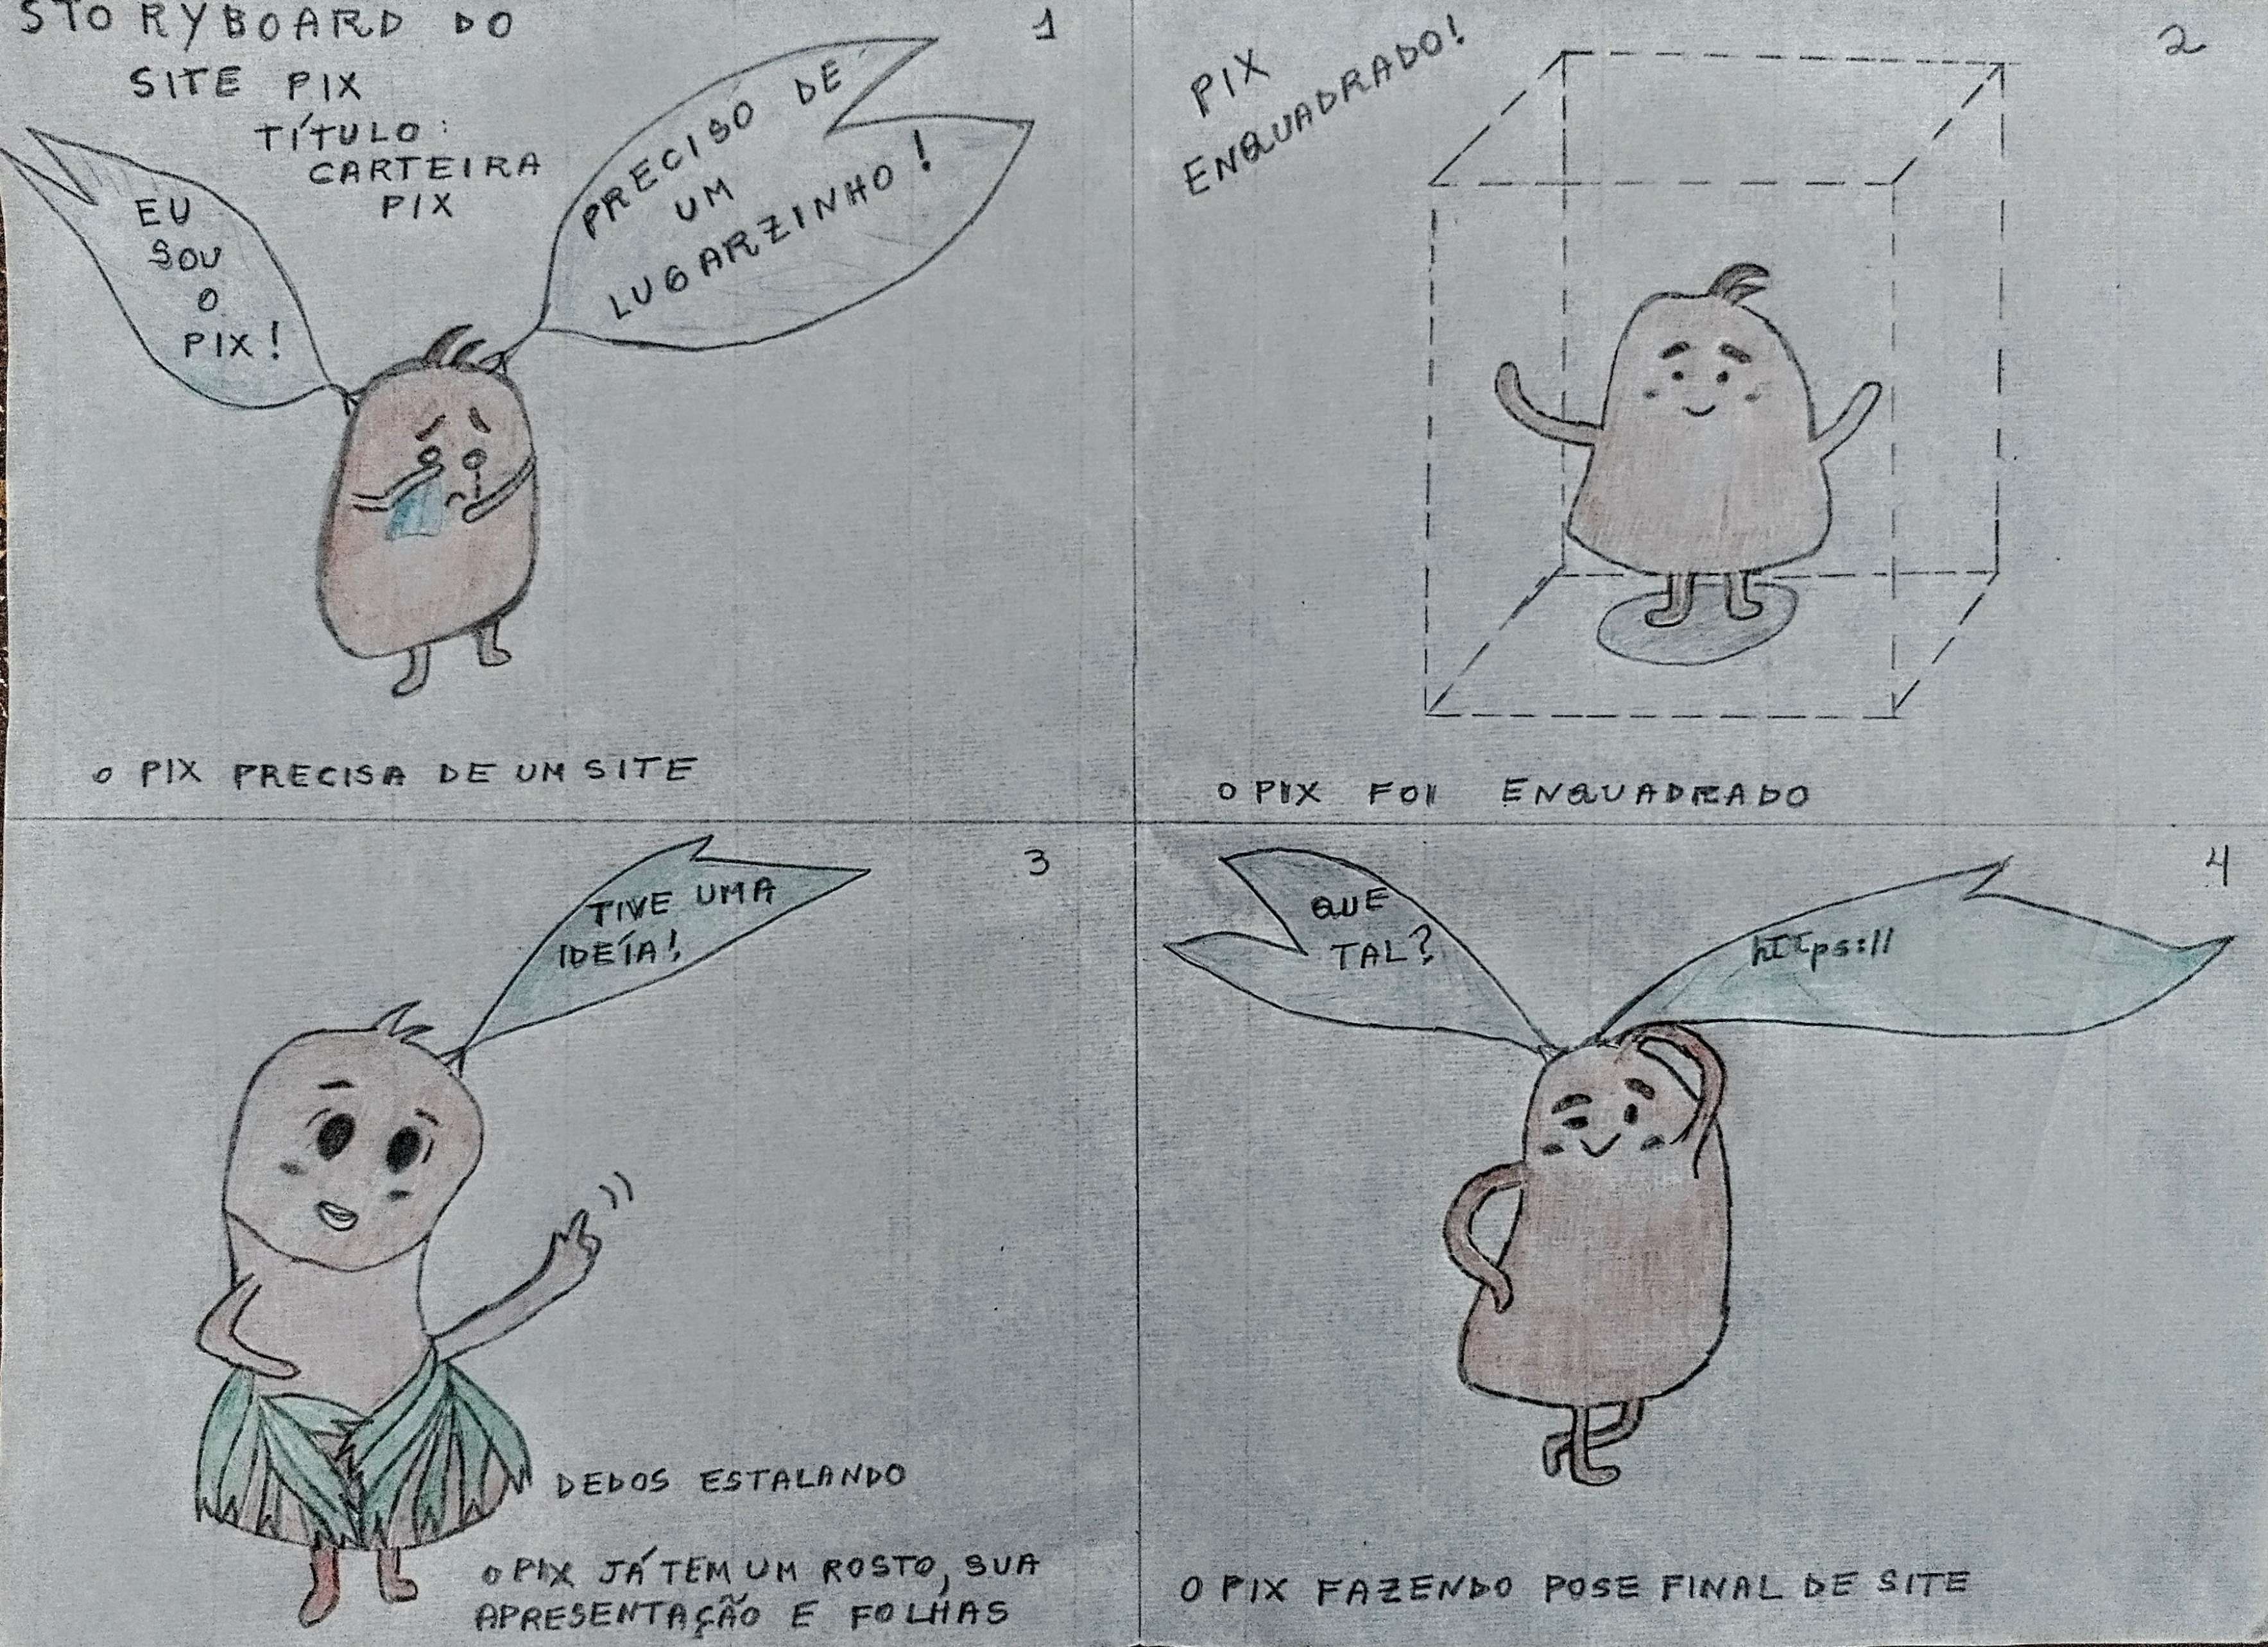 STORYBOARD DO
SITE PIX
TÍTULO:
CARTEIRA
PIX
1
EU
SOU
O
PIX!
PRECISO DE
UM
LUGARZINHO!
O PIX PRECISA DE UM SITE
2
PIX
ENQUADRADO!
O PIX FOI ENQUADRADO
3
TIVE UMA
IDEÍA!
DEDOS ESTALANDO
O PIX JÁ TEM UM ROSTO, SUA
APRESENTAÇÃO E FOLHAS
4
QUE
TAL?
https://
O PIX FAZENDO POSE FINAL DE SITE